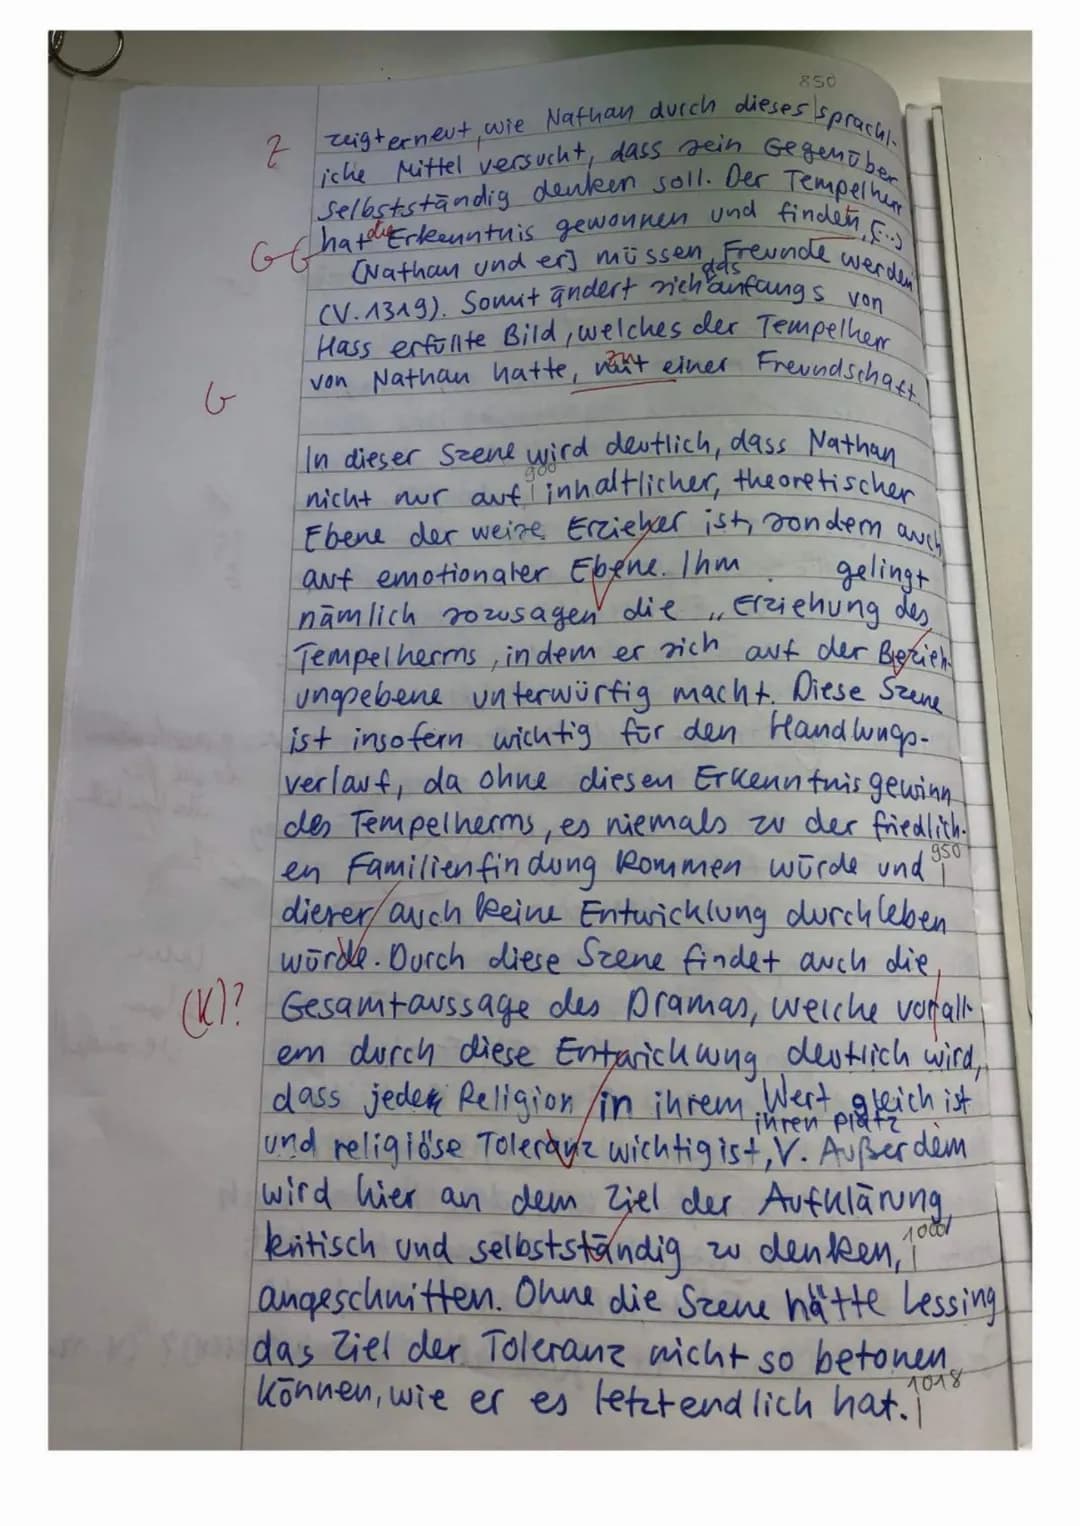 850
Z zeigt erneut, wie Nathan durch dieses sprachl-
iche Mittel versucht, dass sein Gegenüber
selbstständig denken soll. Der Tempelherr
G G hat die Erkenntnis gewonnen und finden, [...]
[Nathan und er] müssen Freunde werden
(V. 1319). Somit ändert sich das anfangs von
Hass erfüllte Bild, welches der Tempelherr
G von Nathan hatte, zu einer Freundschaft.
In dieser Szene wird deutlich, dass Nathan
900
nicht nur auf inhaltlicher, theoretischer
Ebene der weise Erzieher ist, sondern auch
auf emotionaler Ebene. Ihm gelingt
nämlich sozusagen die „Erziehung des
Tempelherrns, indem er sich auf der Bezieh-
ungsebene unterwürfig macht. Diese Szene
ist insofern wichtig für den Handlungs-
verlauf, da ohne diesen Erkenntnisgewinn
des Tempelherrns, es niemals zu der friedlich-
en Familienfindung kommen würde und 950
dieser auch keine Entwicklung durchleben
würde. Durch diese Szene findet auch die
(K)? Gesamtaussage des Dramas, welche vor all-
em durch diese Entwicklung deutlich wird,
dass jede Religion in ihrem Wert gleich ist
ihren Platz
und religiöse Toleranz wichtig ist, V. Außerdem
wird hier an dem Ziel der Aufklärung,
kritisch und selbstständig zu denken, 1000
angeschnitten. Ohne die Szene hätte Lessing
das Ziel der Toleranz nicht so betonen
können, wie er es letztendlich hat. 1018